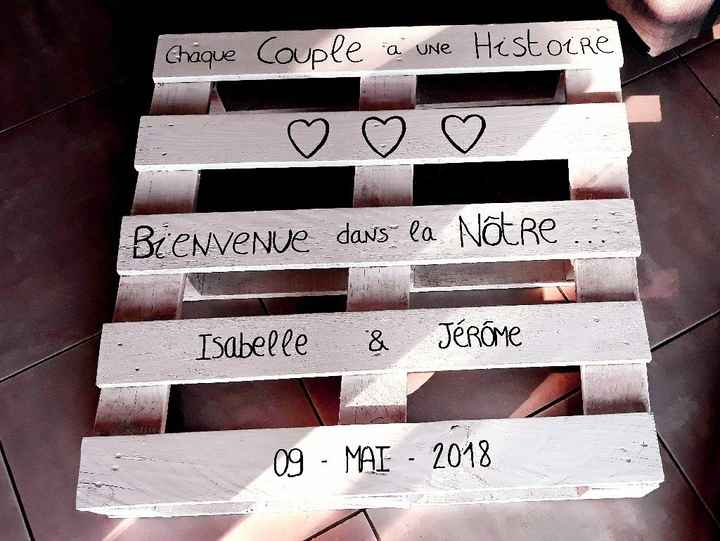 Chaque Couple a une Histoire
Bienvenue dans la Nôtre ...
Isabelle & Jérôme
09 - MAI - 2018